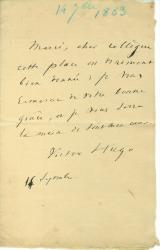 14 7bre 1863
Merci, cher collègue
cette place est vraiment
bien donnée ; je vous
remercie de votre bonne
grâce, et je vous serre
la main de tout mon cœur
Victor Hugo
14 Septembre